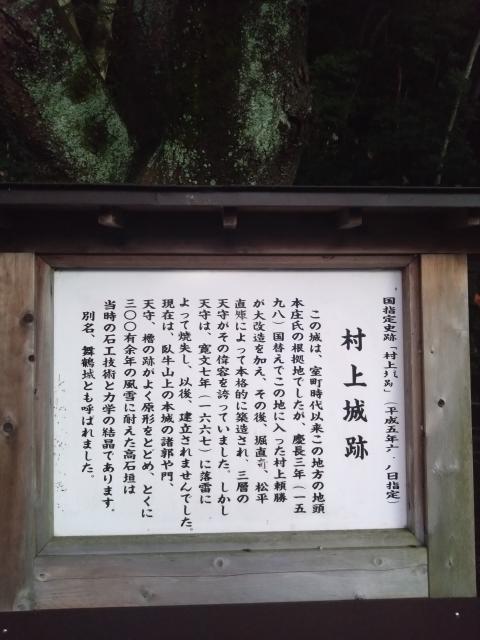 国指定史跡「村上 跡」(平成五年六 八日指定)
村上城跡
この城は、室町時代以来この地方の地頭
本庄氏の根拠地でしたが、慶長三年(一五
九八)国替えでこの地に入った村上頼勝
が大改造を加え、その後、堀直 、松平
直矩によって本格的に築造され、三層の
天守がその偉容を誇っていました。しかし
天守は、寛文七年(一六六七)に落雷に
よって焼失し、以後、建立されませんでした。
現在は、臥牛山上の本城の諸郭や門、
天守、櫓の跡がよく原形をとどめ、とくに
三〇〇有余年の風雪に耐えた高石垣は
当時の石工技術と力学の結晶であります。
別名、舞鶴城とも呼ばれました。